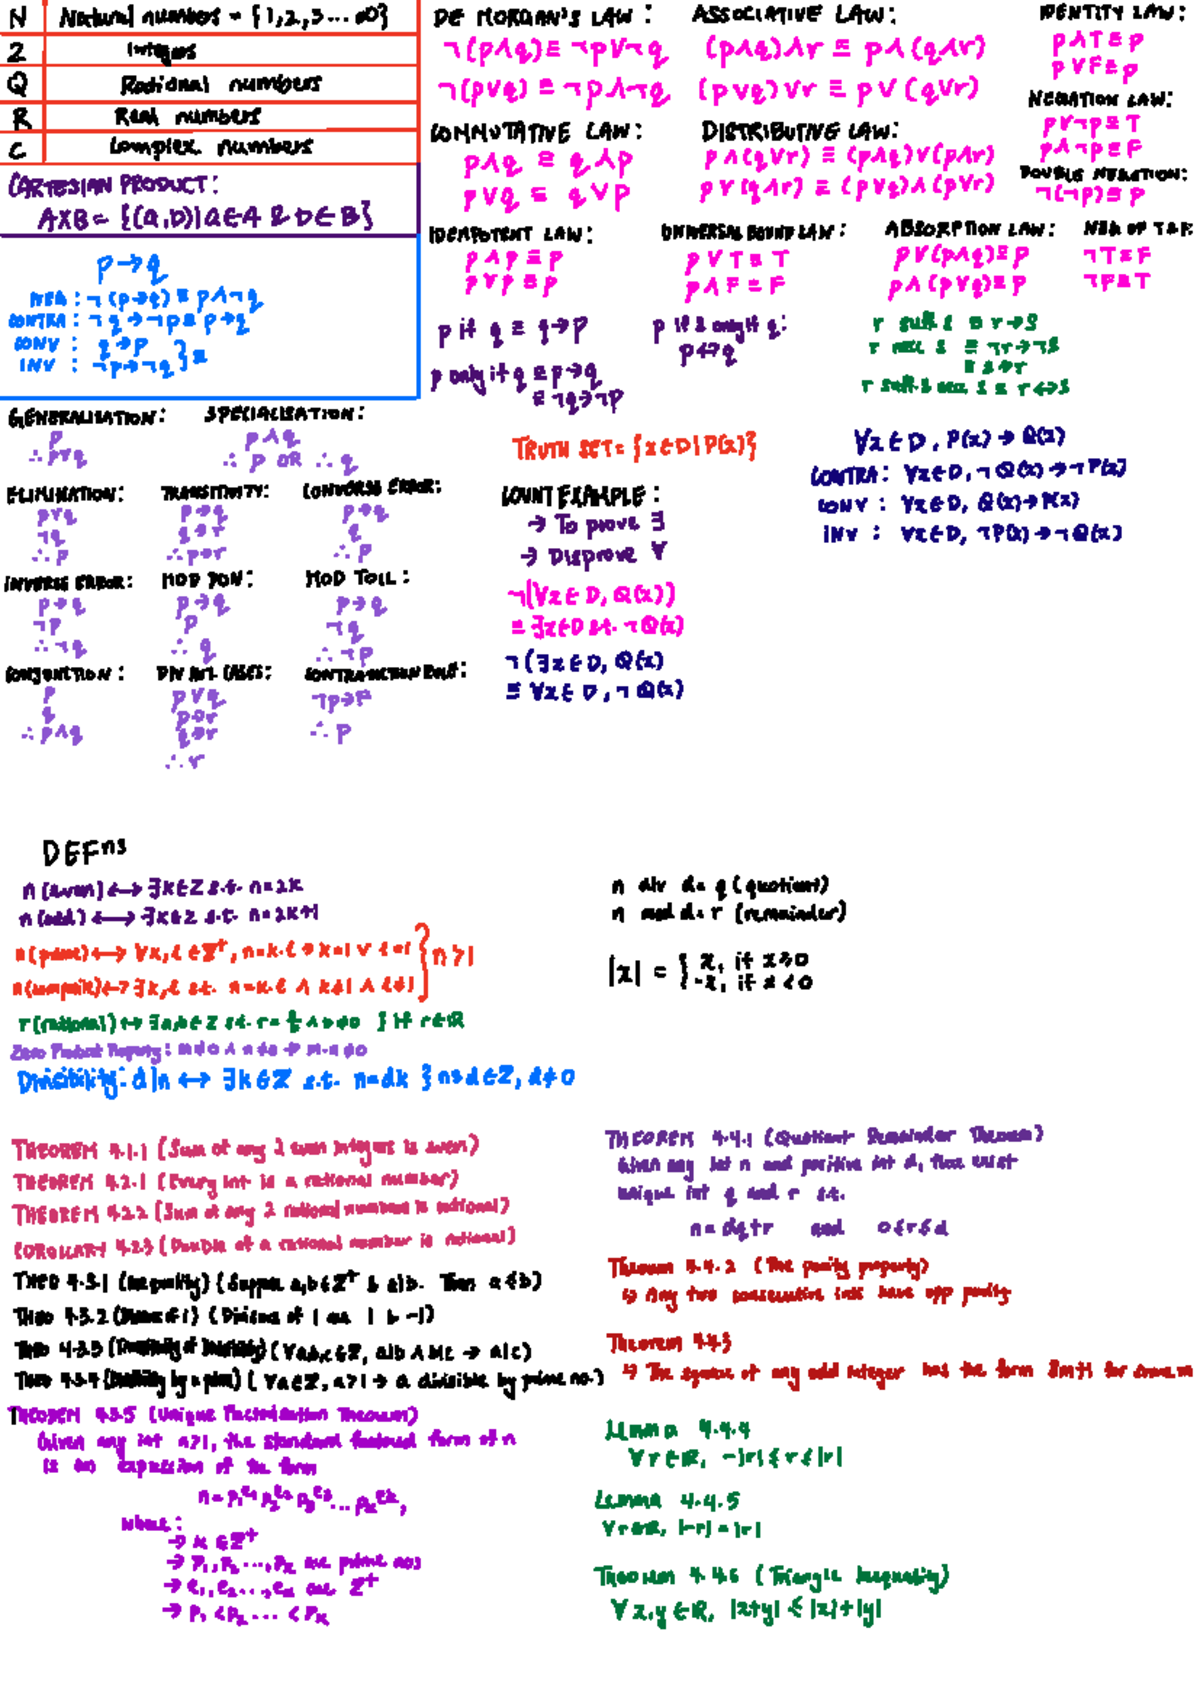 N Natural numbers = {1,2,3...∞}
Z Integers
Q Rational numbers
R Real numbers
C Complex numbers
CARTESIAN PRODUCT:
AXB = {(a,b)|a∈A & b∈B}
p→q
NEG : ¬(p→q) ≡ p∧¬q
CONTRA : ¬q→¬p ≡ p→q
CONV : q→p
INV : ¬p→¬q } ≡
DE MORGAN'S LAW :
¬(p∧q) ≡ ¬p∨¬q
¬(p∨q) ≡ ¬p∧¬q
ASSOCIATIVE LAW :
(p∧q)∧r ≡ p∧(q∧r)
(p∨q)∨r ≡ p∨(q∨r)
IDENTITY LAW:
p∧T≡p
p∨F≡p
COMMUTATIVE LAW :
p∧q ≡ q∧p
p∨q ≡ q∨p
DISTRIBUTIVE LAW:
p∧(q∨r) ≡ (p∧q)∨(p∧r)
p∨(q∧r) ≡ (p∨q)∧(p∨r)
NEGATION LAW:
p∨¬p≡T
p∧¬p≡F
DOUBLE NEGATION:
¬(¬p)≡p
IDEMPOTENT LAW :
p∧p≡p
p∨p≡p
UNIVERSAL BOUND LAW :
p∨T≡T
p∧F≡F
ABSORPTION LAW :
p∨(p∧q)≡p
p∧(p∨q)≡p
NEG OF T&F:
¬T≡F
¬F≡T
p if q ≡ q→p
p only if q ≡ p→q
≡ ¬q→¬p
p if & only if q:
p↔q
r suff. s ≡ r→s
r nec s ≡ ¬r→¬s
≡ s→r
r suff & nec s ≡ r↔s
GENERALISATION:
p
∴ p∨q
SPECIALISATION:
p∧q
∴ p OR ∴ q
ELIMINATION:
p∨q
¬q
∴ p
TRANSITIVITY:
p→q
q→r
∴ p→r
CONVERSE ERROR:
p→q
q
∴ p
INVERSE ERROR:
p→q
¬p
∴ ¬q
MOD PON:
p→q
p
∴ q
MOD TOLL :
p→q
¬q
∴ ¬p
CONJUNCTION :
p
q
∴ p∧q
DIV INTO CASES:
p∨q
p→r
q→r
∴ r
CONTRADICTION RULE:
¬p→F
∴ p
TRUTH SET= {x∈D|P(x)}
COUNT EXAMPLE :
→ To prove ∃
→ Disprove ∀
¬(∀x∈D, Q(x))
≡ ∃x∈D s.t. ¬Q(x)
¬(∃x∈D, Q(x)
≡ ∀x∈D, ¬Q(x)
∀x∈D, P(x) → Q(x)
CONTRA: ∀x∈D, ¬Q(x)→¬P(x)
CONV : ∀x∈D, Q(x)→P(x)
INV : ∀x∈D, ¬P(x)→¬Q(x)
DEFns
n (even) ↔ ∃k∈Z s.t. n=2k
n (odd) ↔ ∃k∈Z s.t. n=2k+1
n (prime) ↔ ∀k,ℓ∈Z⁺, n=k.ℓ → k=1 ∨ ℓ=1
n (composite) ↔ ∃k,ℓ s.t. n=k.ℓ ∧ k≠1 ∧ ℓ≠1 } n>1
r (rational) ↔ ∃a,b∈Z s.t. r=a/b ∧ b≠0 } if r∈R
Zero Product Property: m≠0 ∧ n≠0 → m.n≠0
Divisibility: d|n ↔ ∃k∈Z s.t. n=dk } n&d∈Z, d≠0
n div d= q (quotient)
n mod d= r (remainder)
|x| = { x, if x≥0
-x, if x<0
THEOREM 4.1.1 (Sum of any 2 even integers is even)
THEOREM 4.2.1 (Every int is a rational number)
THEOREM 4.2.2 (Sum of any 2 rational numbers is rational)
COROLLARY 4.2.3 (Double of a rational number is rational)
THEO 4.3.1 (Inequality) (Suppose a,b∈Z⁺ & a|b. Then a≤b)
THEO 4.3.2 (Divisors of 1) (Divisors of 1 are 1 & -1)
THEO 4.3.3 (Transitivity of Divisibility) (∀a,b,c∈Z, a|b ∧ b|c → a|c)
THEO 4.3.4 (Divisibility by a prime) (∀a∈Z, a>1 → a divisible by prime no.)
THEOREM 4.3.5 (Unique Factorisation Theorem)
Given any int n>1, the standard factored form of n
is an expression of the form
n = p₁^e1 p₂^e2 p₃^e3 ... pk^ek,
where:
→ k∈Z⁺
→ p₁, p₂ ..., pk are prime nos
→ e₁, e₂ ..., ek are Z⁺
→ p₁ < p₂ ... < pk
THEOREM 4.4.1 (Quotient Remainder Theorem)
Given any int n and positive int d, there exist
unique int q and r s.t.
n = dq+r and 0≤r≤d
Theorem 4.4.2 (The parity property)
↳ Any two consecutive ints have opp parity
Theorem 4.4.3
↳ The square of any odd integer has the form 8m+1 for some m
Lemma 4.4.4
∀r∈R, -|r| ≤ r ≤ |r|
Lemma 4.4.5
∀r∈R, |-r| = |r|
Theorem 4.4.6 (Triangle Inequality)
∀x,y∈R, |x+y| ≤ |x|+|y|